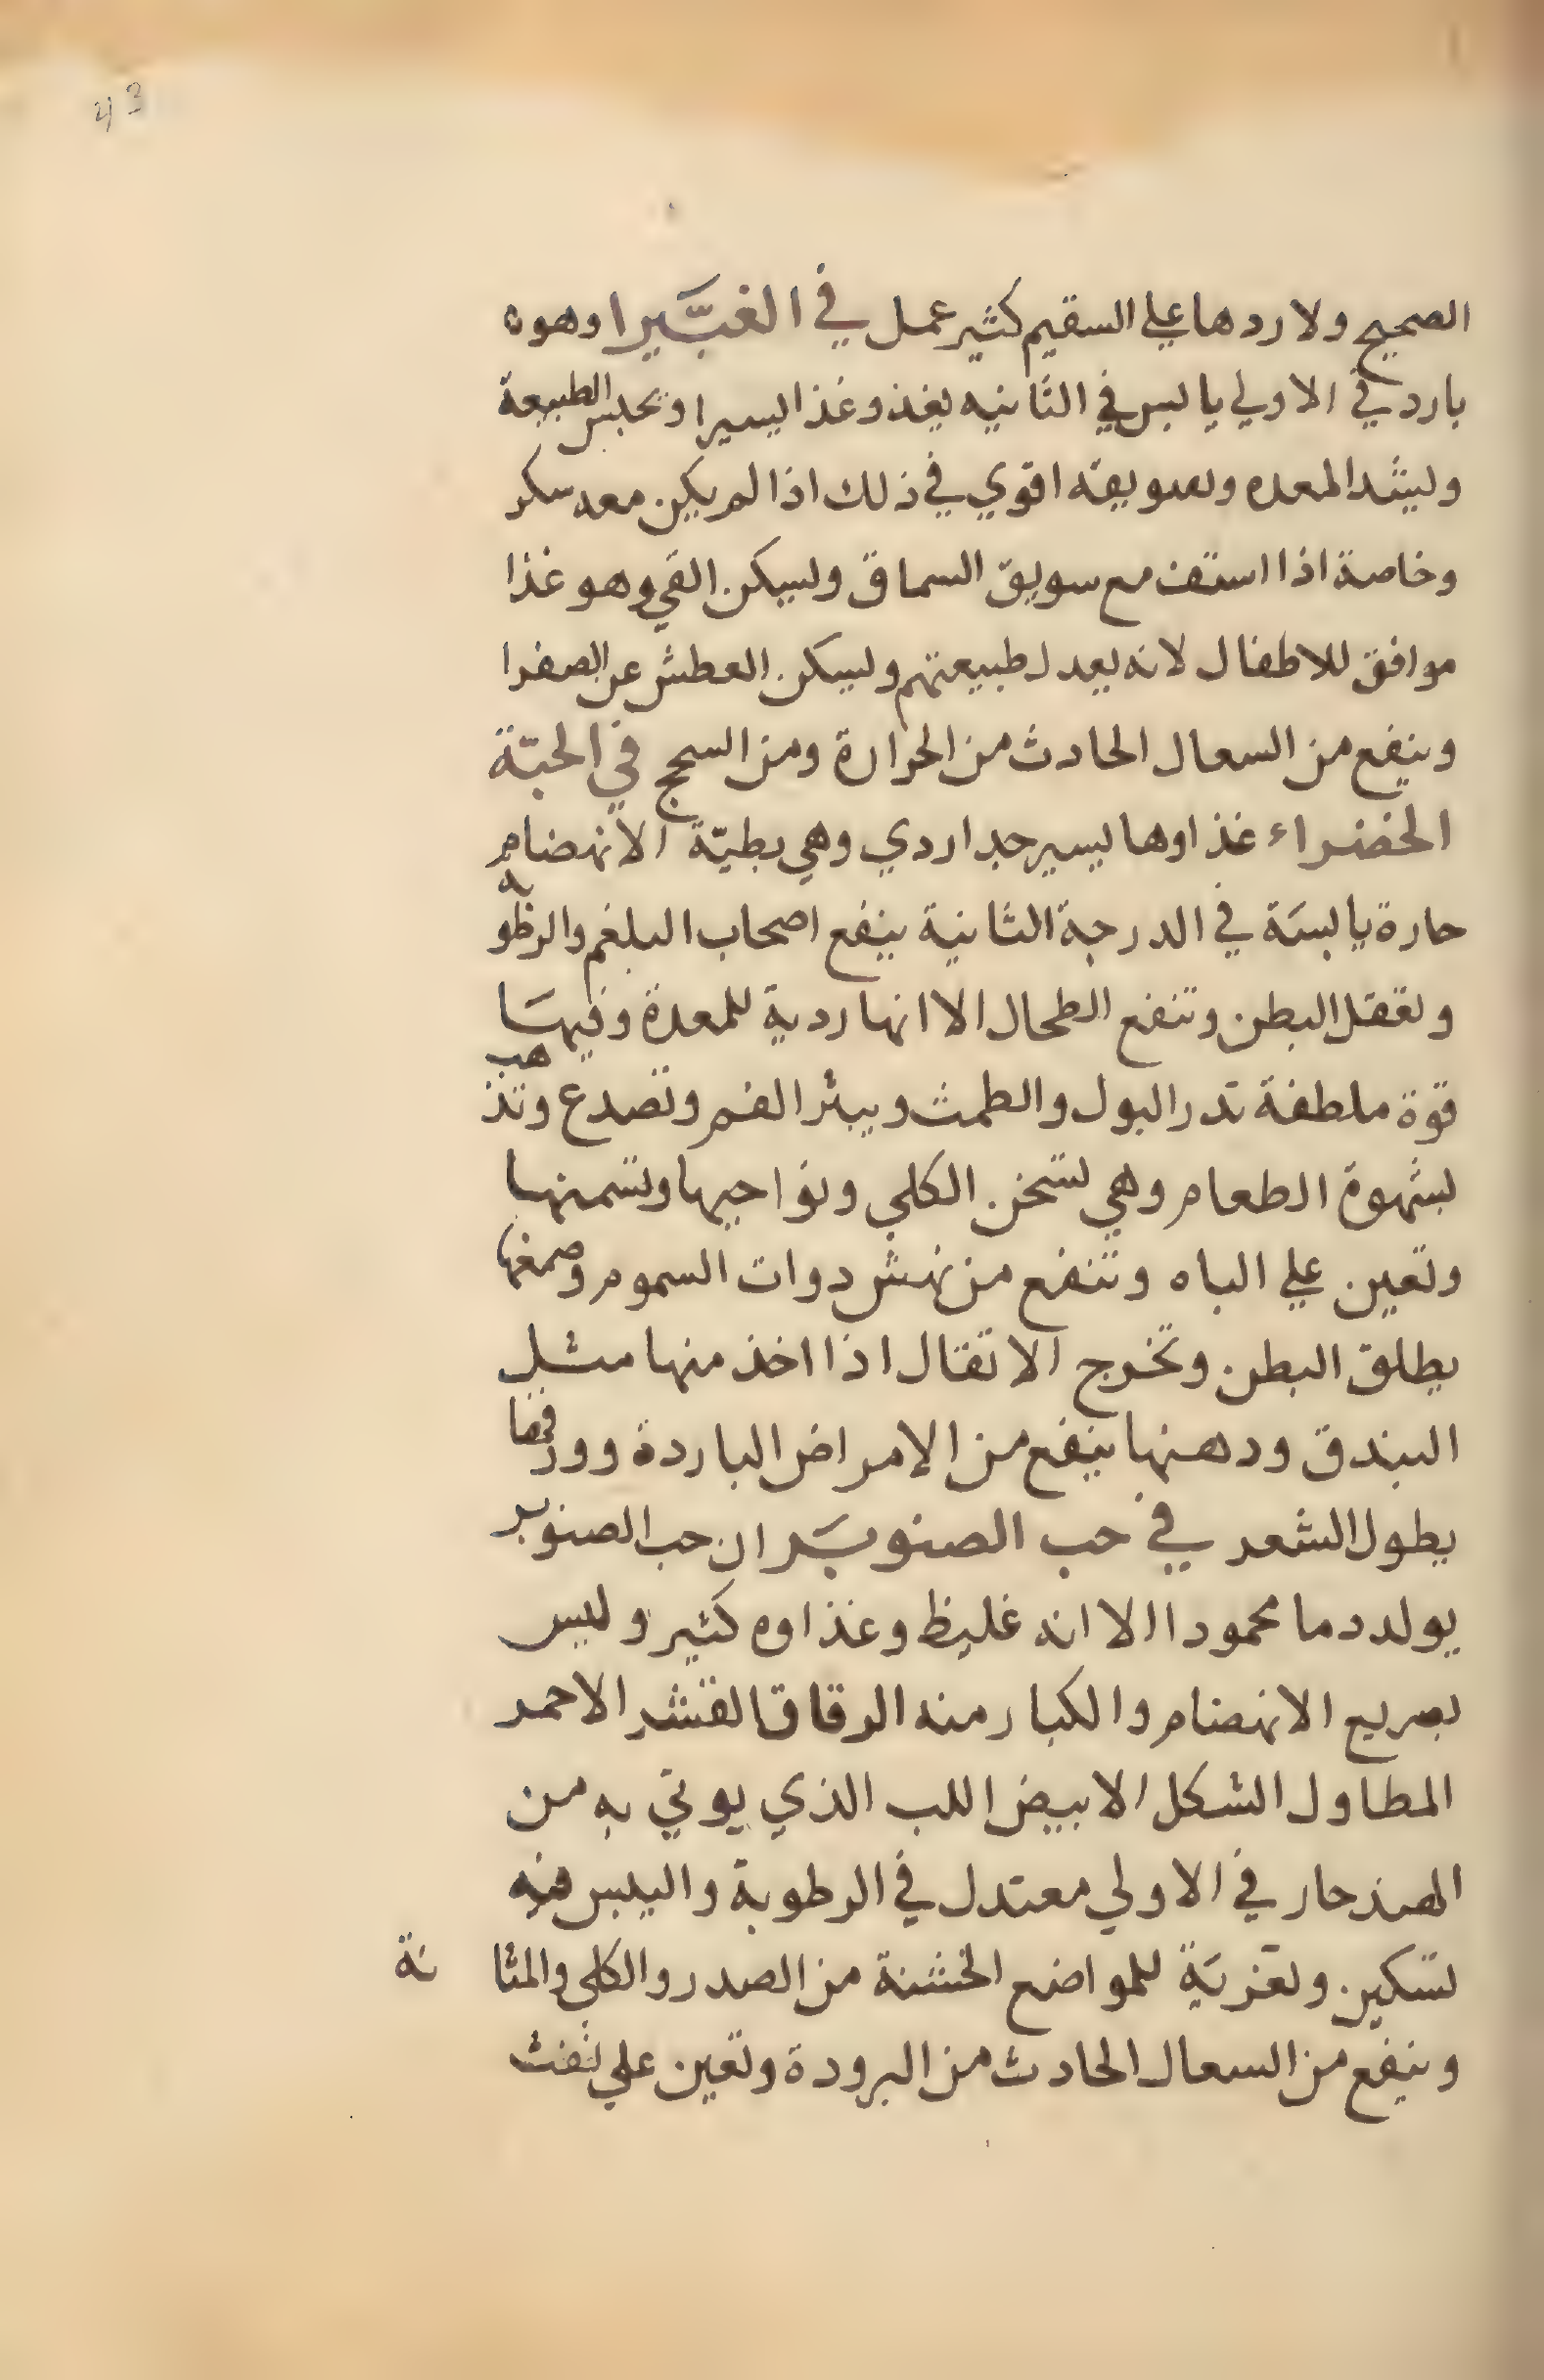 43
الصحيح ولا ردها علي السقيم كثير عمل في الغبَّيرا وهو
بارد في الاولي يابس في الثانيه يغذو غذا يسيرا ويحبس الطبيعة
ويشد المعده وسويقه اقوي في ذلك اذا لم يكن معه سكر
وخاصة اذا استف مع سويق السماق ويسكن القي وهو غذا
موافق للاطفال لانه يعدل طبيعتهم ويسكن العطش عن الصفرا
وينفع من السعال الحادث من الحرارة ومن السحج في الحبّة
الخضراء غذاوها يسير جدا ردي وهي بطيّة الانهضام
حارة يابسَة في الدرجة الثانية ينفع اصحاب البلغم والرطوبة
وتعقل البطن وتنفع الطحال الا انها ردية للمعدة وفيهَا
قوة ملطفة تدر البول والطمث ويبثر الفم وتصدع وتذهب
بشهوة الطعام وهي تسخن الكلي ونواحيها وتسمنها
وتعين علي الباه وتنفع من نهش دوات السموم وصمغها
يطلق البطن وتخرج الاتقال اذا اخذ منها مثل
البندق ودهنها ينفع من الامراض الباردة وورقها
يطول الشعر في حب الصنوبَر ان حب الصنوبر
يولد دما محمودا الا انه غليظ وغذاوه كثير وليس
بسريع الانهضام والكبار منه الرقاق القشر الاحمر
المطاول الشكل الابيض اللب الذي يوتي به من
الهند حار في الاولي معتدل في الرطوبة واليبس فيه
تسكين وتغرية للمواضع الخشنة من الصدر والكلي والمثانة
وينفع من السعال الحادث من البرودة وتعين علي نفث